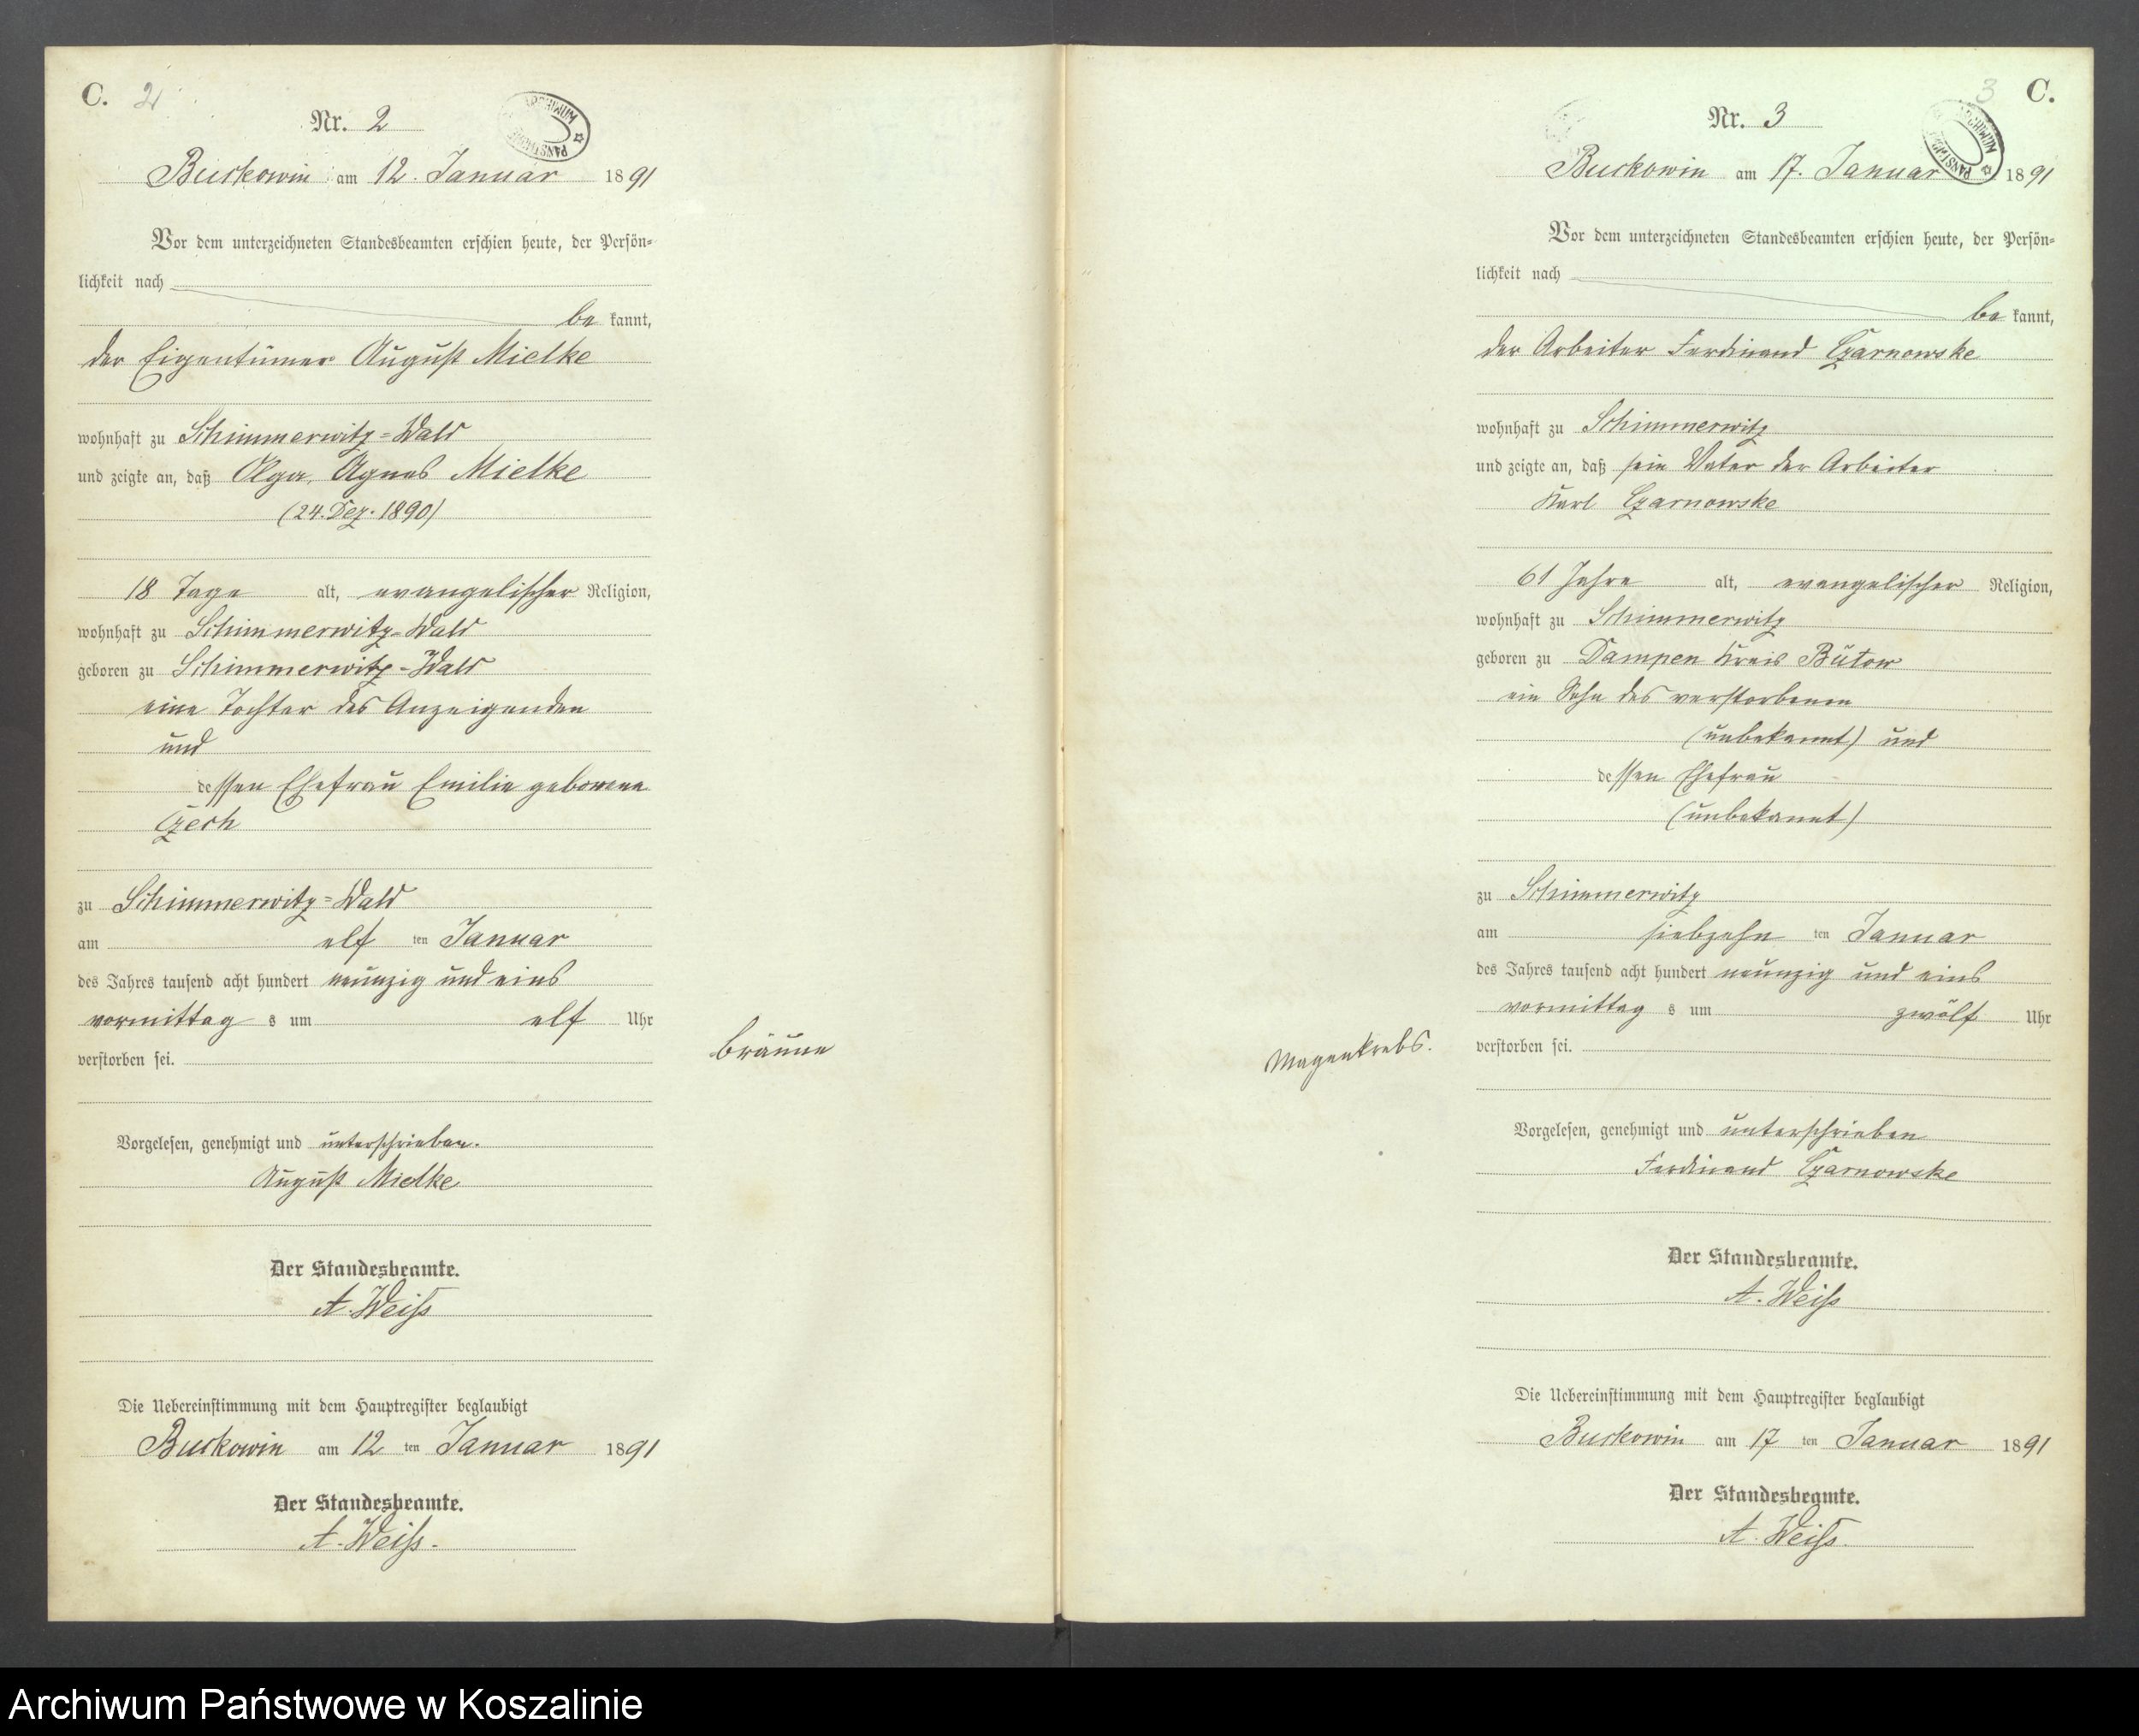 C. 2
Nr. 2
ARCHIWUM PAŃSTWOWE
Buckowin am 12. Januar 1891
Vor dem unterzeichneten Standesbeamten erschien heute, der Persön=
lichkeit nach
be kannt,
der Eigentümer August Mielke
wohnhaft zu Schimmerwitz=Wald
und zeigte an, daß Olga, Agnes Mielke
(24. Dez. 1890)
18 Tage alt, evangelischer Religion,
wohnhaft zu Schimmerwitz-Wald
geboren zu Schimmerwitz-Wald
eine Tochter des Anzeigenden
und
dessen Ehefrau Emilie geborene
Czech
zu Schimmerwitz=Wald
am elf ten Januar
des Jahres tausend acht hundert neunzig und eins
vormittag s um elf Uhr
verstorben sei.
bräune
Vorgelesen, genehmigt und unterschrieben.
August Mielke
Der Standesbeamte.
A. Weiß
Die Uebereinstimmung mit dem Hauptregister beglaubigt
Buckowin am 12 ten Januar 1891
Der Standesbeamte.
A. Weiß.
3 C.
Nr. 3
ARCHIWUM PAŃSTWOWE
Buckowin am 17. Januar 1891
Vor dem unterzeichneten Standesbeamten erschien heute, der Persön=
lichkeit nach
be kannt,
der Arbeiter Ferdinand Czarnowske
wohnhaft zu Schimmerwitz
und zeigte an, daß sein Vater der Arbeiter
Karl Czarnowske
61 Jahre alt, evangelischer Religion,
wohnhaft zu Schimmerwitz
geboren zu Dampen Kreis Bütow
ein Sohn des verstorbenen
(unbekannt) und
dessen Ehefrau
(unbekannt)
zu Schimmerwitz
am siebzehn ten Januar
des Jahres tausend acht hundert neunzig und eins
vormittag s um zwölf Uhr
verstorben sei.
Magenkrebs.
Vorgelesen, genehmigt und unterschrieben
Ferdinand Czarnowske
Der Standesbeamte.
A. Weiß
Die Uebereinstimmung mit dem Hauptregister beglaubigt
Buckowin am 17 ten Januar 1891
Der Standesbeamte.
A. Weiß.
Archiwum Państwowe w Koszalinie